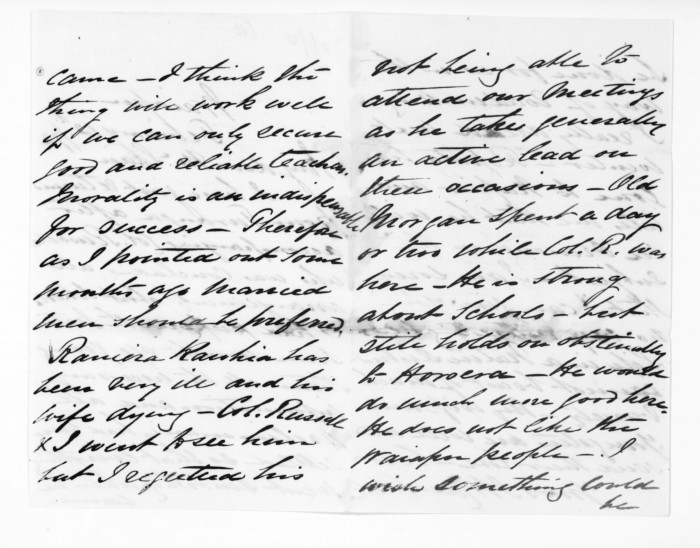 came – I think the
thing will work well
if we can only secure
good and reliable teachers.
Morality is an indispensable
for success – Therefore
as I pointed out some
months ago married
men should be preferred.
Raniera Kauhia has
been very ill and his
wife dying – Col. Russell
& I went to see him
but I regretted his
not being able to
attend our Meetings
as he takes generally
an active lead on
these occasions – Old
Morgan spent a day
or two while Col. R. was
here – He is strong
about Schools – but
still holds on obstinately
to Horoera – He would
do much more good here.
He does not like the
Waiapu people – I
wish something could
be